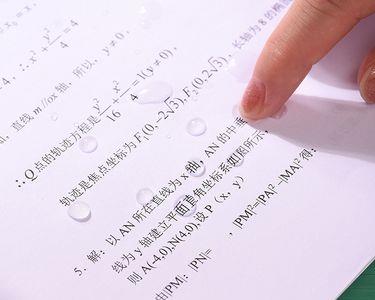 x₀ = x,
∴x² + y²/4 = 4
直线 m //ox 轴，所以，y≠0，
∴Q 点的轨迹方程是 y²/16 + x²/4 = 1(y≠0)，
轨迹是焦点坐标为 F₁(0，-2√3)，F₂(0,2√3)，长轴为 8 的椭圆
5．解：以 AN 所在直线为 x 轴，AN 的中垂
线为 y 轴建立平面直角坐标系如图所示，
则 A(-4,0),N(4,0),设 P（x，y）
由|PM|：|PN|= ，|PM|²=|PA|²-|MA|²得：